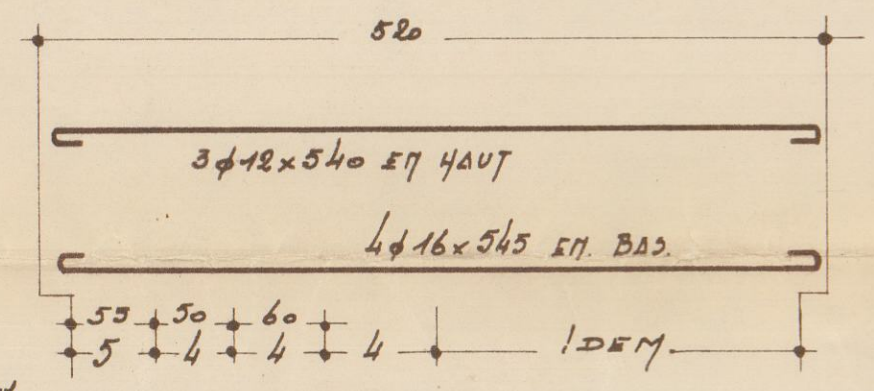 520
3ϕ12x540 EN HAUT
4ϕ16x545 EN. BAS.
55 50 60
5 4 4 4 IDEM